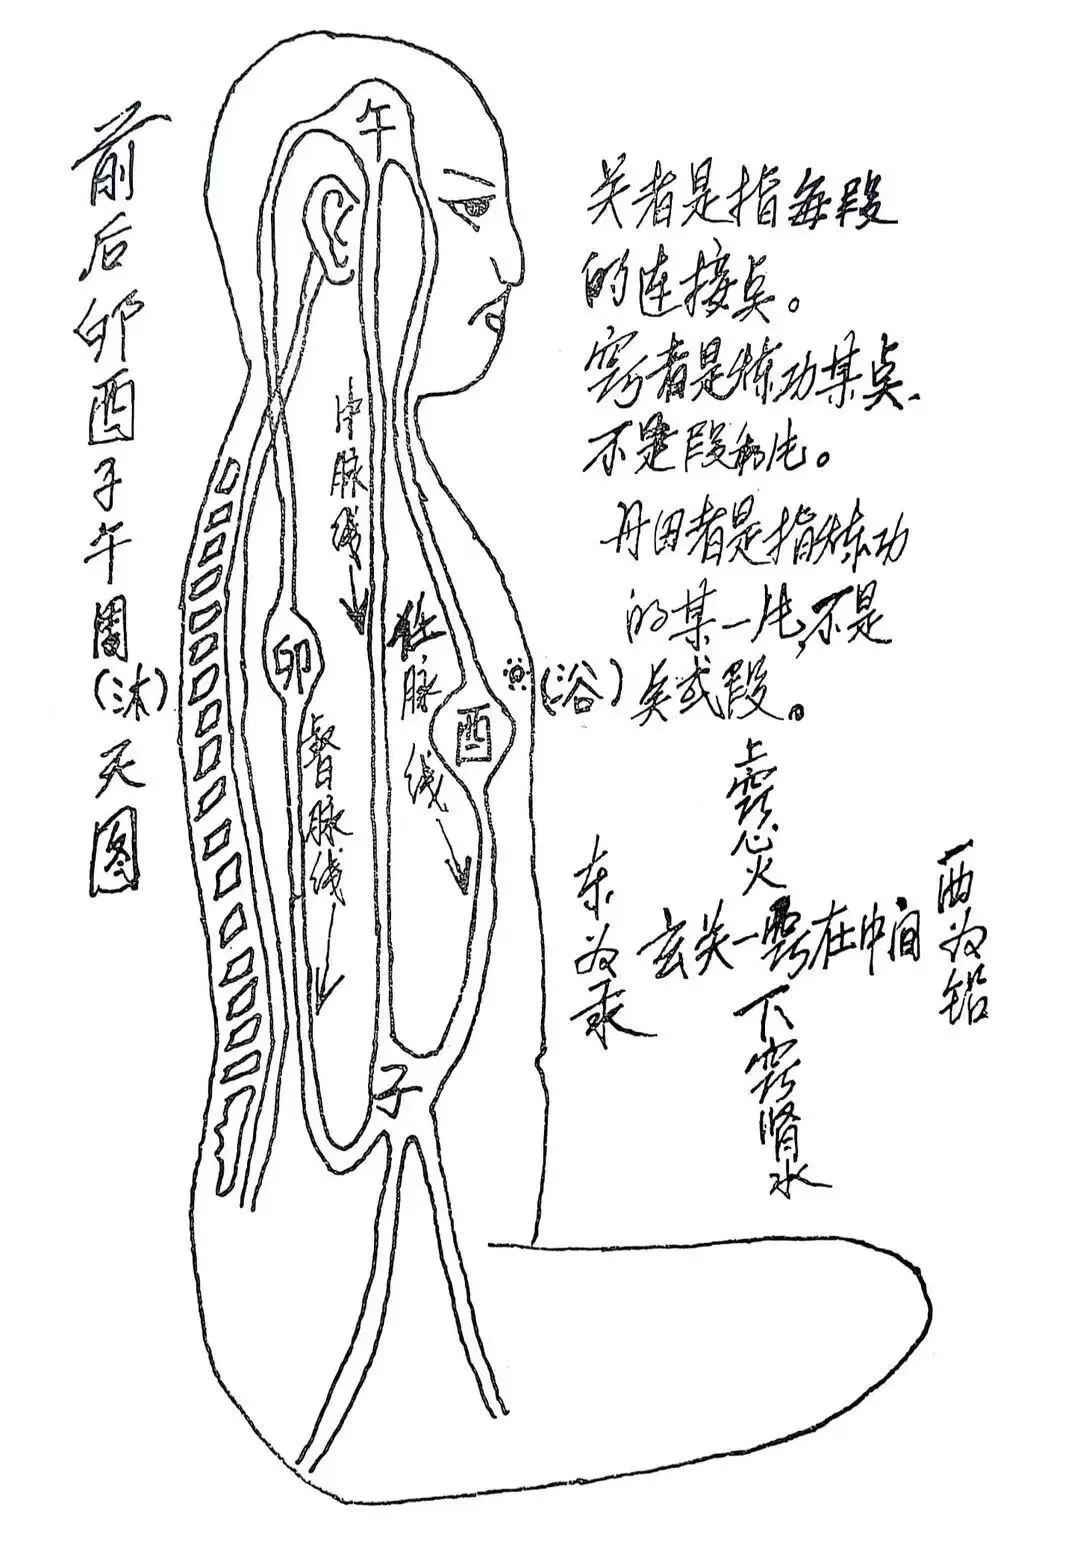 前后卯酉子午周天图
(沐)
午
中脉线
任脉线
卯
督脉线
酉
子
(浴)
关者是指每段
的连接点。
窍者是炼功某点、
不是段和片。
丹田者是指炼功
的某一片,不是
点或段。
上窍心火
东为汞
玄关一窍在中间
西为铅
下窍肾水